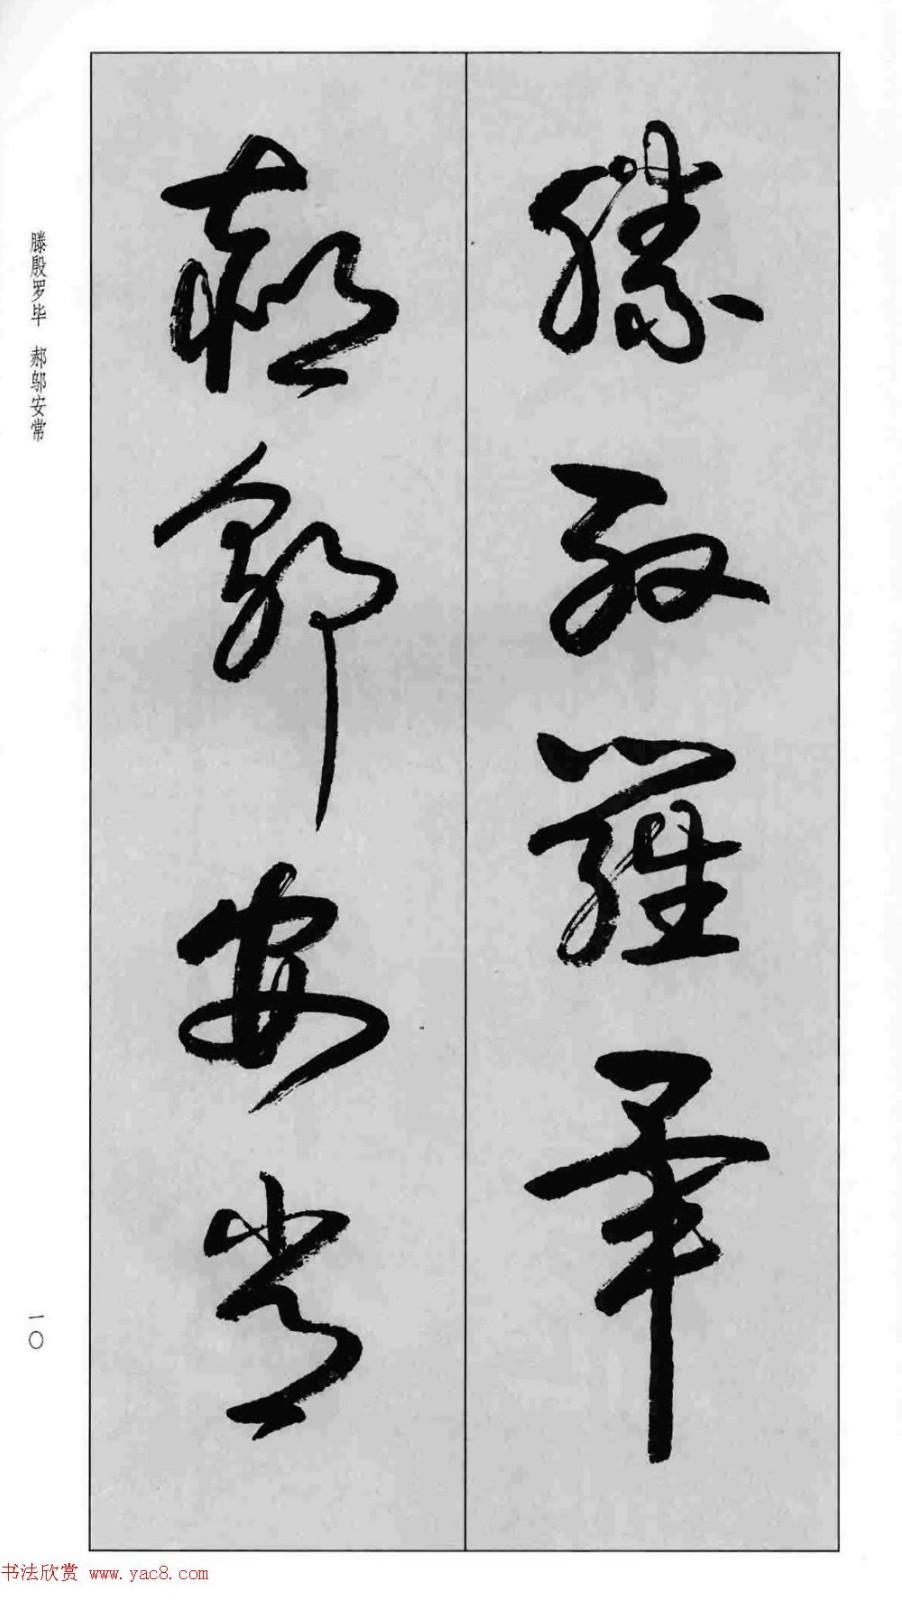 滕殷羅畢
郝鄔安常
滕殷罗毕 郝邬安常
一〇
书法欣赏 www.yac8.com